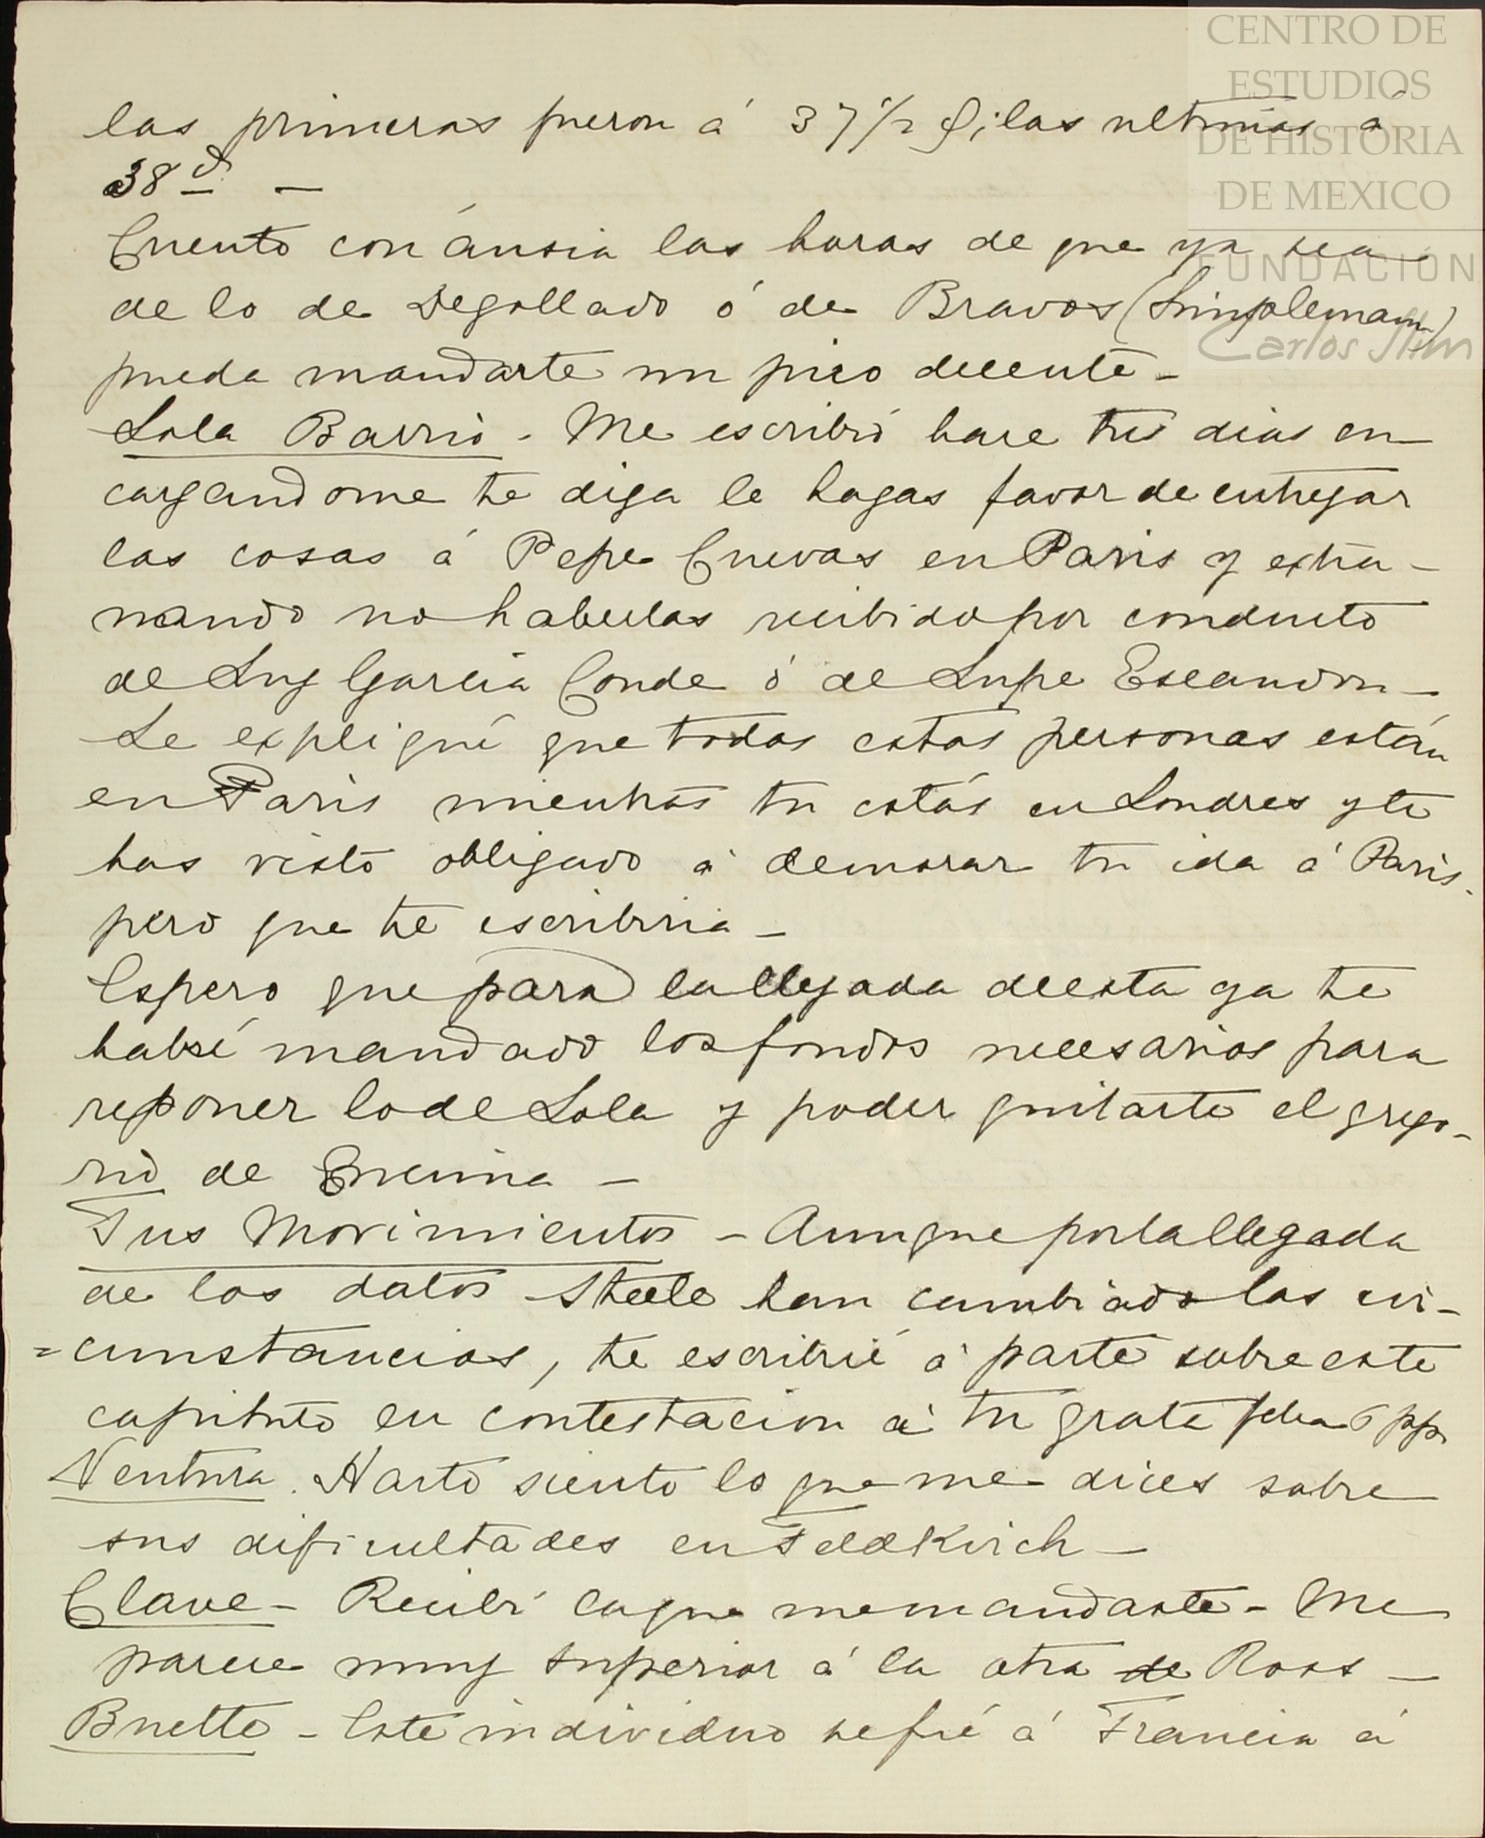 CENTRO DE
ESTUDIOS
DE HISTORIA
DE MEXICO
FUNDACION
Carlos Slim
las primeras fueron á 37½ d; las ultimas á
38 d —
Cuento con ánsia las horas de que ya sea
de lo de Degollado ó de Bravos (Simplemam)
pueda mandarte un pico decente —
Lola Barrio - Me escribió hace tres dias en-
cargandome te diga le hagas favor de entregar
las cosas á Pepe Cuevas en Paris y extra-
nando no haberlas recibido por conducto
de Luz Garcia Conde ó de Lupe Escandon —
Le expliqué que todas estas personas están
en Paris mientras tu estás en Londres y te
has visto obligado á demorar tu ida á Paris.
pero que te escribiria —
Espero que para la llegada de esta ya te
habré mandado los fondos necesarios para
reponer lo de Lola y poder quitarte el grego-
rio de Encima —
Tus Movimientos - Aunque por la llegada
de los datos Steele han cambiado las cir-
=cunstancias, te escribiré á parte sobre este
capitulo en contestacion á tu grata fecha 6 pp
Ventura. Harto siento lo que me dices sobre
sus dificultades en Feldkirch —
Clave - Recibi la que me mandaste - Me
parece muy superior á la otra de Roos —
Bnette - Este individuo se fué á Francia á